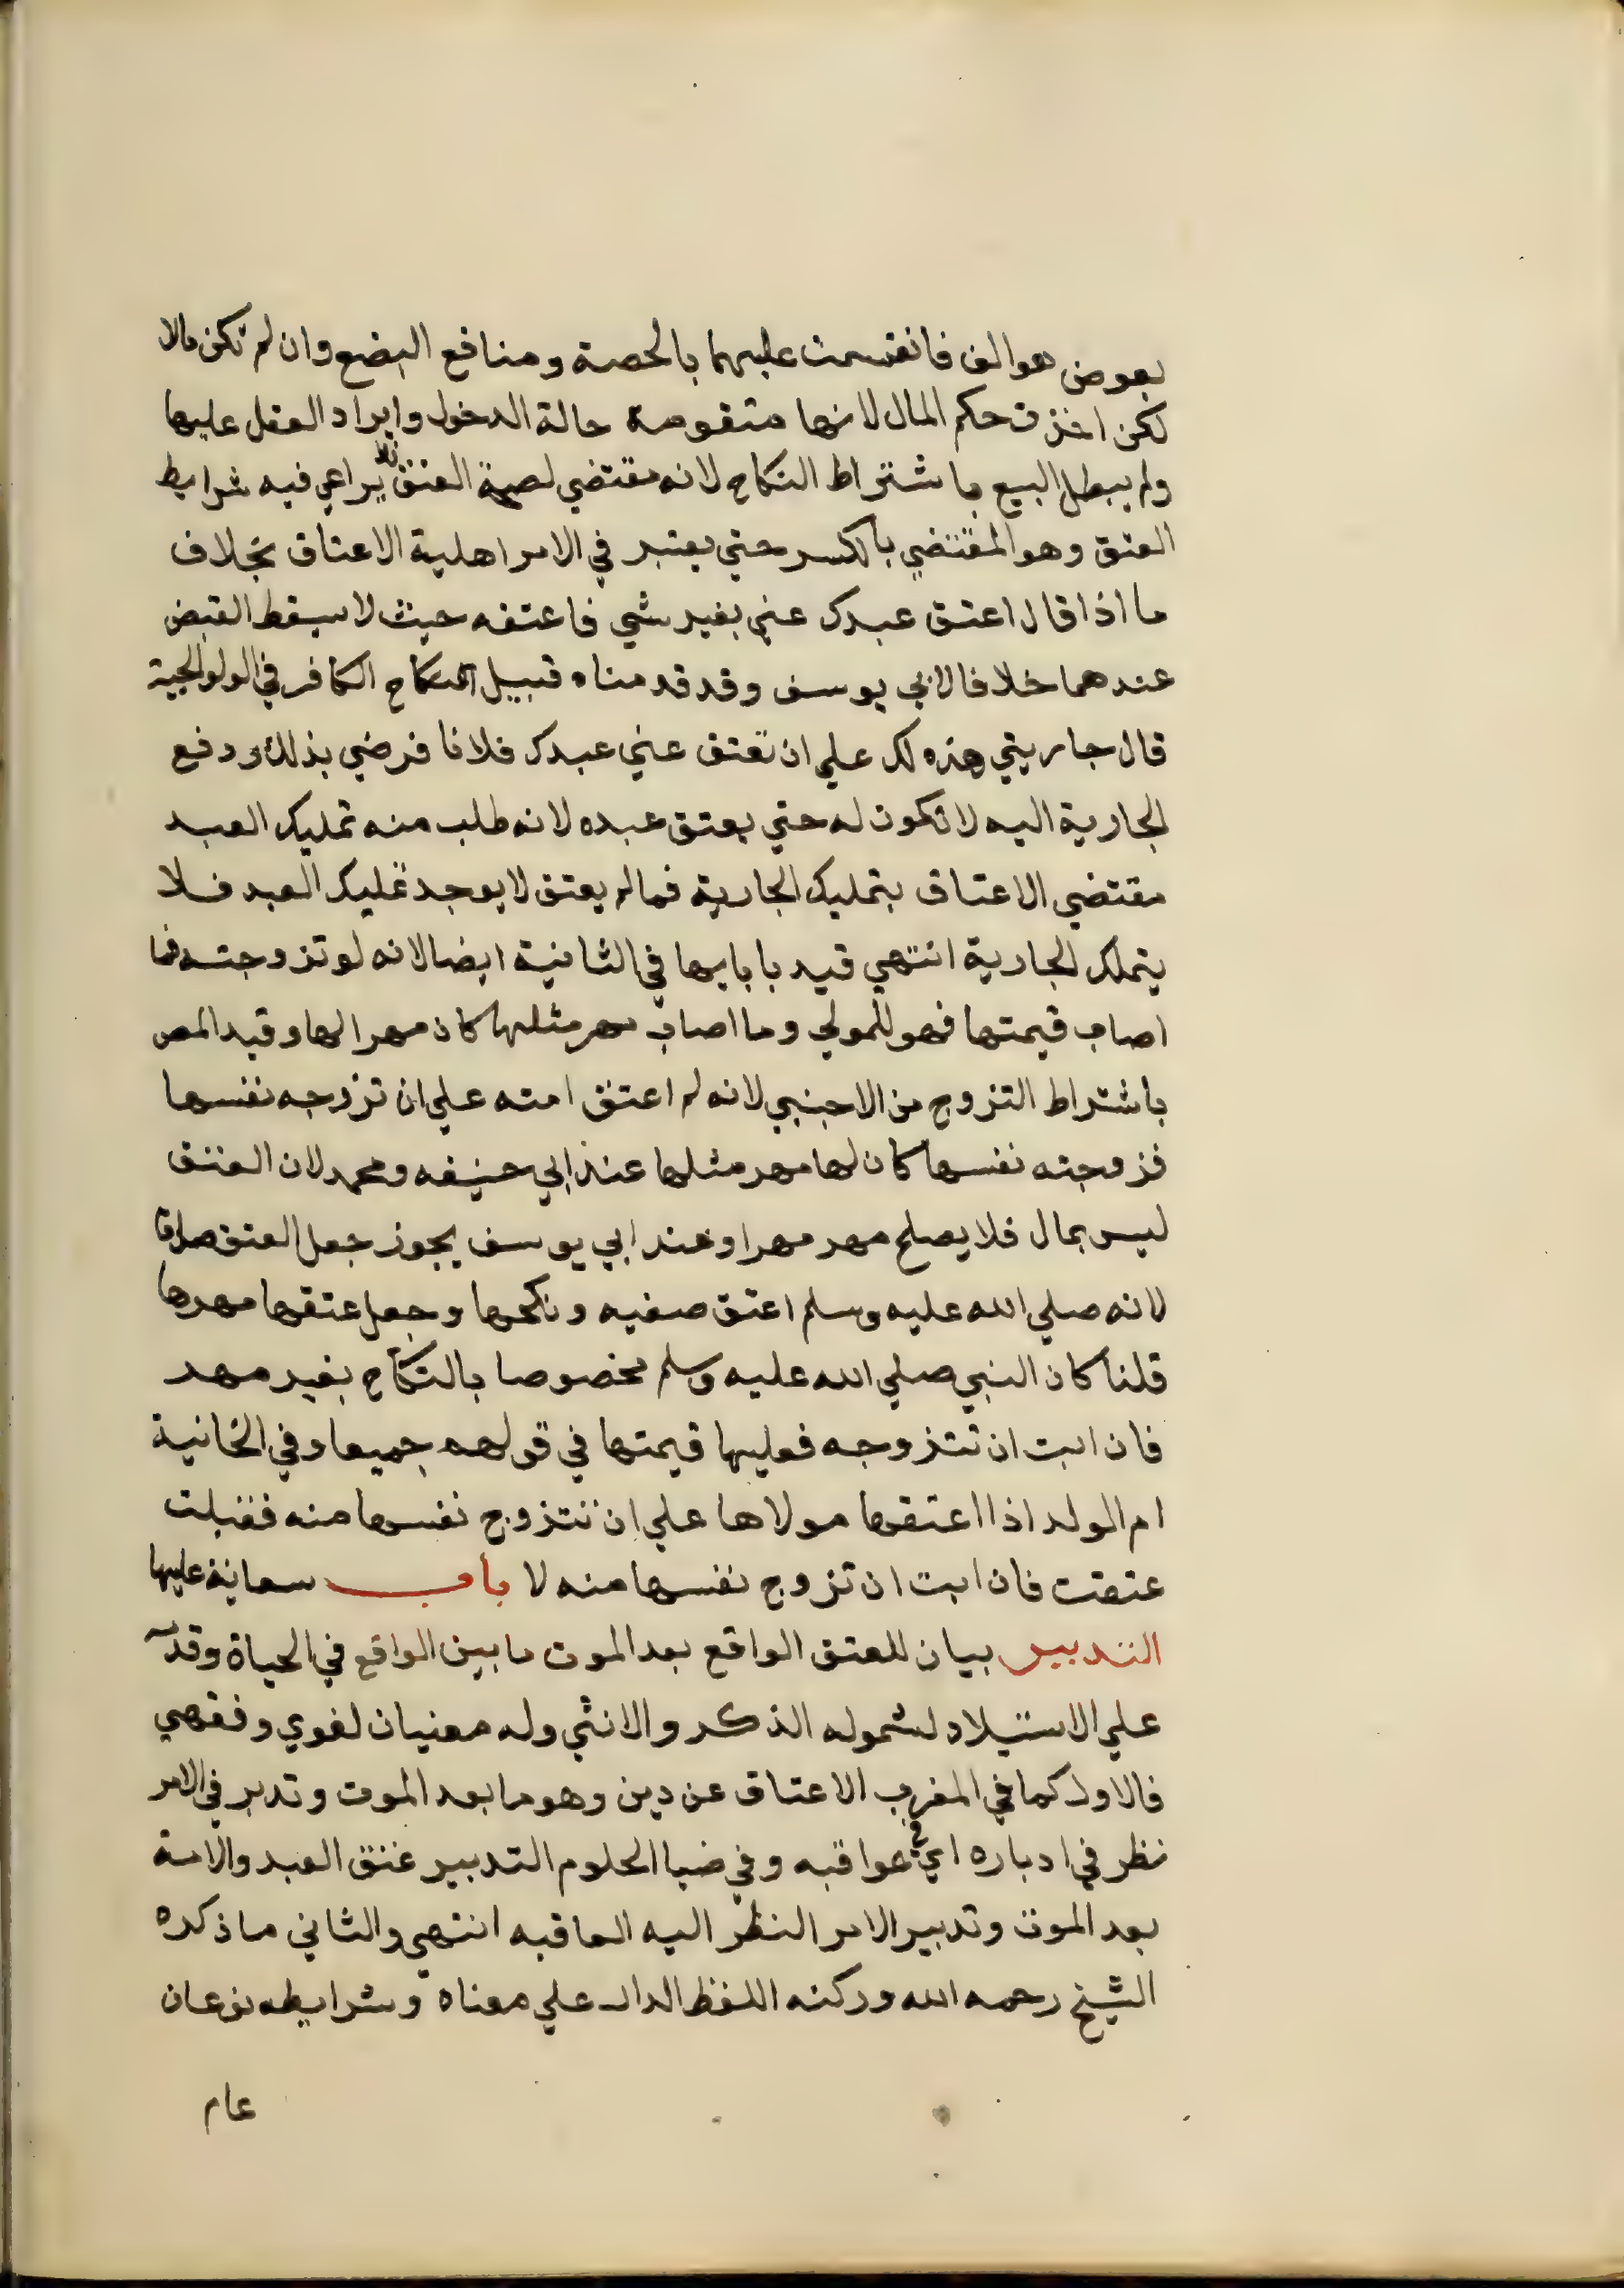 بعوض هو الف فانقسمت عليهما بالحصة ومنافع البضع وان لم تكن مالا
لكن اخذت حكم المال لانها متقومة حالة الدخول وايراد العقل عليها
ولم يبطل البيع باشتراط النكاح لانه مقتضي لصحة العتق فلا يراعي فيه شرايط
العتق وهو المقتضي بالكسر حتي يعتبر في الامر اهلية الاعتاق بخلاف
ما اذا قال اعتق عبدك عني بغير شي فاعتقه حيث لا يسقط القبض
عندهما خلافا لابي يوسف وقد قدمناه قبيل النكاح الكافر في الولوالجية
قال جاريتي هذه لك علي ان تعتق عني عبدك فلانا فرضي بذلك ودفع
الجارية اليه لا تكون له حتي يعتق عبده لانه طلب منه تمليك العبد
مقتضي الاعتاق بتمليك الجارية فما لم يعتق لا يوجد تمليك العبد فلا
يتملك الجارية انتهي قيد بابايها في الثانية ايضا لانه لو تزوجته فما
اصاب قيمتها فهو للمولي وما اصاب مهر مثلها كان مهرا لها وقيد المص
باشتراط التزوج من الاجنبي لانه لم اعتق امته علي ان تزوجه نفسها
فزوجته نفسها كان لها مهر مثلها عند ابي حنيفه ومحمد لان العتق
ليس بمال فلا يصلح مهر مهرا وعند ابي يوسف يجوز جعل العتق صداقا
لانه صلي الله عليه وسلم اعتق صفيه ونكحها وجعل عتقها مهرها
قلنا كان النبي صلي الله عليه وسلم مخصوصا بالنكاح بغير مهر
فان ابت ان تتزوجه فعليها قيمتها في قولهم جميعا وفي الخانية
ام الولد اذا اعتقها مولاها علي ان تتزوج نفسها منه فقبلت
عتقت فان ابت ان تزوج نفسها منه لا باب سعاية عليها
التدبير بيان للعتق الواقع بعد الموت ما بين الواقع في الحياة وقدمه
علي الاستيلاد لشموله الذكر والانثي وله معنيان لغوي وفقهي
فالاول كما في المغرب الاعتاق عن دبر وهو ما بعد الموت وتدبر في الامر
نظر في ادباره اي في عواقبه وفي ضيا الحلوم التدبير عتق العبد والامة
بعد الموت وتدبير الامر النظر اليه العاقبه انتهي والثاني ما ذكره
الشيخ رحمه الله وركنه اللفظ الدال علي معناه وشرايطه نوعان
عام